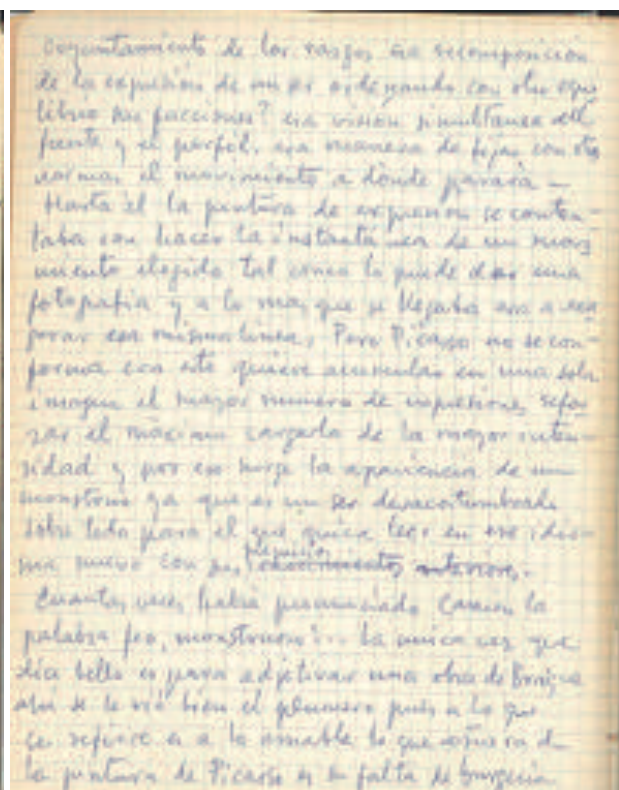 coyuntamiento de los rasgos esa recomposición
de la expresión de un ser ordenando con otro equi
librio sus facciones? esa visión simultanea del
frente y el perfil, esa manera de fijar con otra
norma el movimiento a donde
Hasta el la pintura de expresion se conten-
taba con hacer la instantanea de un movi
miento elegido tal como lo puede dar una
fotografia y a lo mas que se llegaba era a
esa misma linea, Pero Picasso no se con-
forma con esto quiere acumular en una sola
imagen el mayor numero de expresiones
zar el máximo cargarla de la mayor inten-
sidad y por eso surge la apariencia de un
monstruo ya que es un ser desacostumbrado
sobre todo para el que quiera leer en ese idio-
ma nuevo con sus
Cuantas veces habrá pronunciado la
palabra feo, monstruoso!... La unica vez que
dice bello es para adjetivar una obra de
ahi se le vé bien el plumero pues a lo que
se refiere es a lo amable lo que
la pintura de Picasso es la falta de